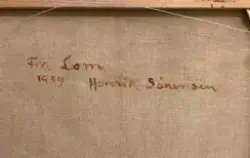 Fra Lom
1939 Henrik Sørensen